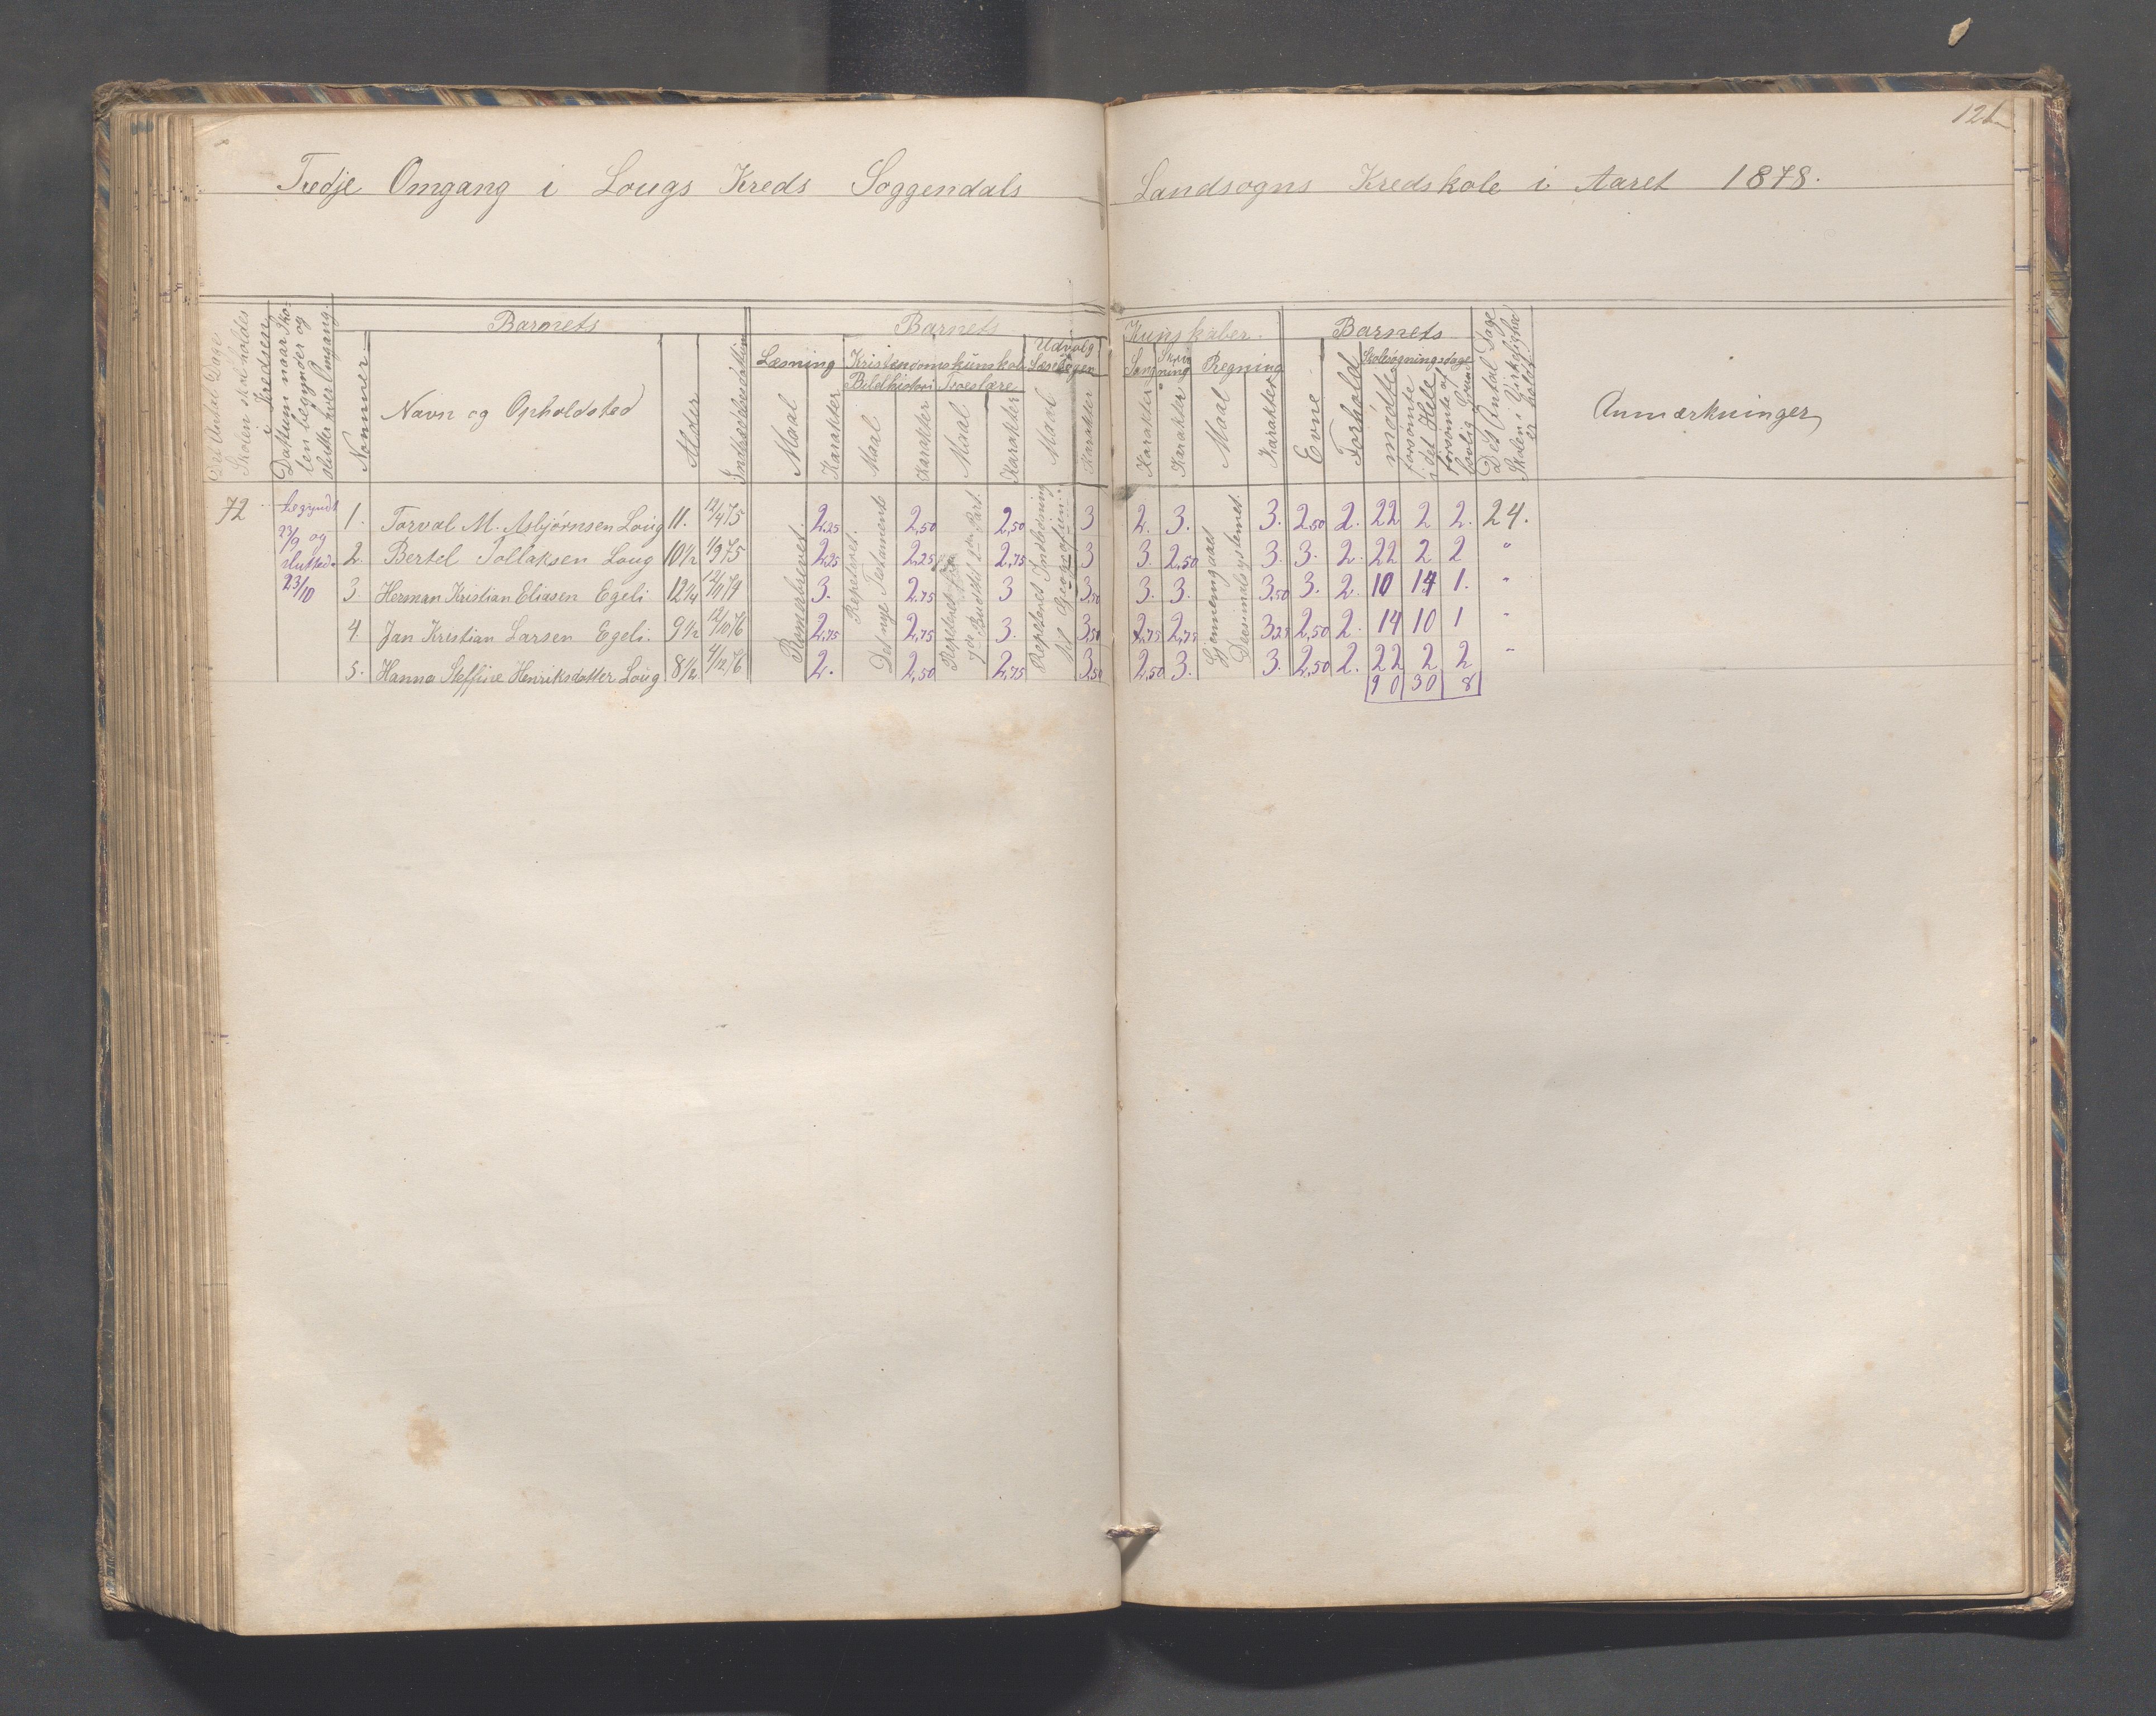 121
Tredje Omgang i Lougs Kreds Soggendals Landsogns Kredskole i Aaret 1878.
Det Antal Dage Skolen skal holdes i Kredsen
Dattum naar Skolen begynder og slutter hver Omgang.
Nommer
Barnets
Navn og Opholdsted
Alder
Indtrædelsesdattum
Barnets Kunskaber.
Læsning
Maal
Karakter
Kristendomskunskab
Bibelhistori
Maal
Karakter
Troeslære
Maal
Karakter
Udvalg Læsebogen
Maal
Karakter
Sang
Karakter
Skrivning
Karakter
Regning
Maal
Karakter
Barnets
Evne
Forhold
Skolesøgningsdage
mødte
forsømte i det Hele
forsømte af lovlig Grund
Det Antal Dage Skolen i Virkelighed er holdt
Anmærkninger
72 begyndt 23/9 og sluttede 23/10
1. Torval M. Asbjørnsen Loug 11. 12/4 75 2,25 2,50 2,50 3 2. 3. 3. 2,50 2. 22 2 2. 24.
2. Bertel Tollaksen Loug 10½ 1/9 75 2,25 2,25 2,75 3 3. 2,50 3. 3. 2. 22 2 2 "
3. Herman Kristian Eliasen Egeli 12¼ 12/11 74 3. 2,75 3 3,50 3. 3. 3,50 3. 2. 10 14 1. "
4. Jan Kristian Larsen Egeli. 9½ 12/10 76 2,75 2,75 3. 3,50 2,75 2,75 3,25 2,50 2. 14 10 1 "
5. Hanna Steffine Henriksdatter Loug 8½ 4/12 76 2. 2,50 2,75 3,50 2,50 3. 3. 2,50 2. 22 2 2 "
90 30 8
Repeteret. Det nye Testamente
Repeteret fra
Repeteret Indledning til Geografien
Gjennemgaaet Decimalsystemet.